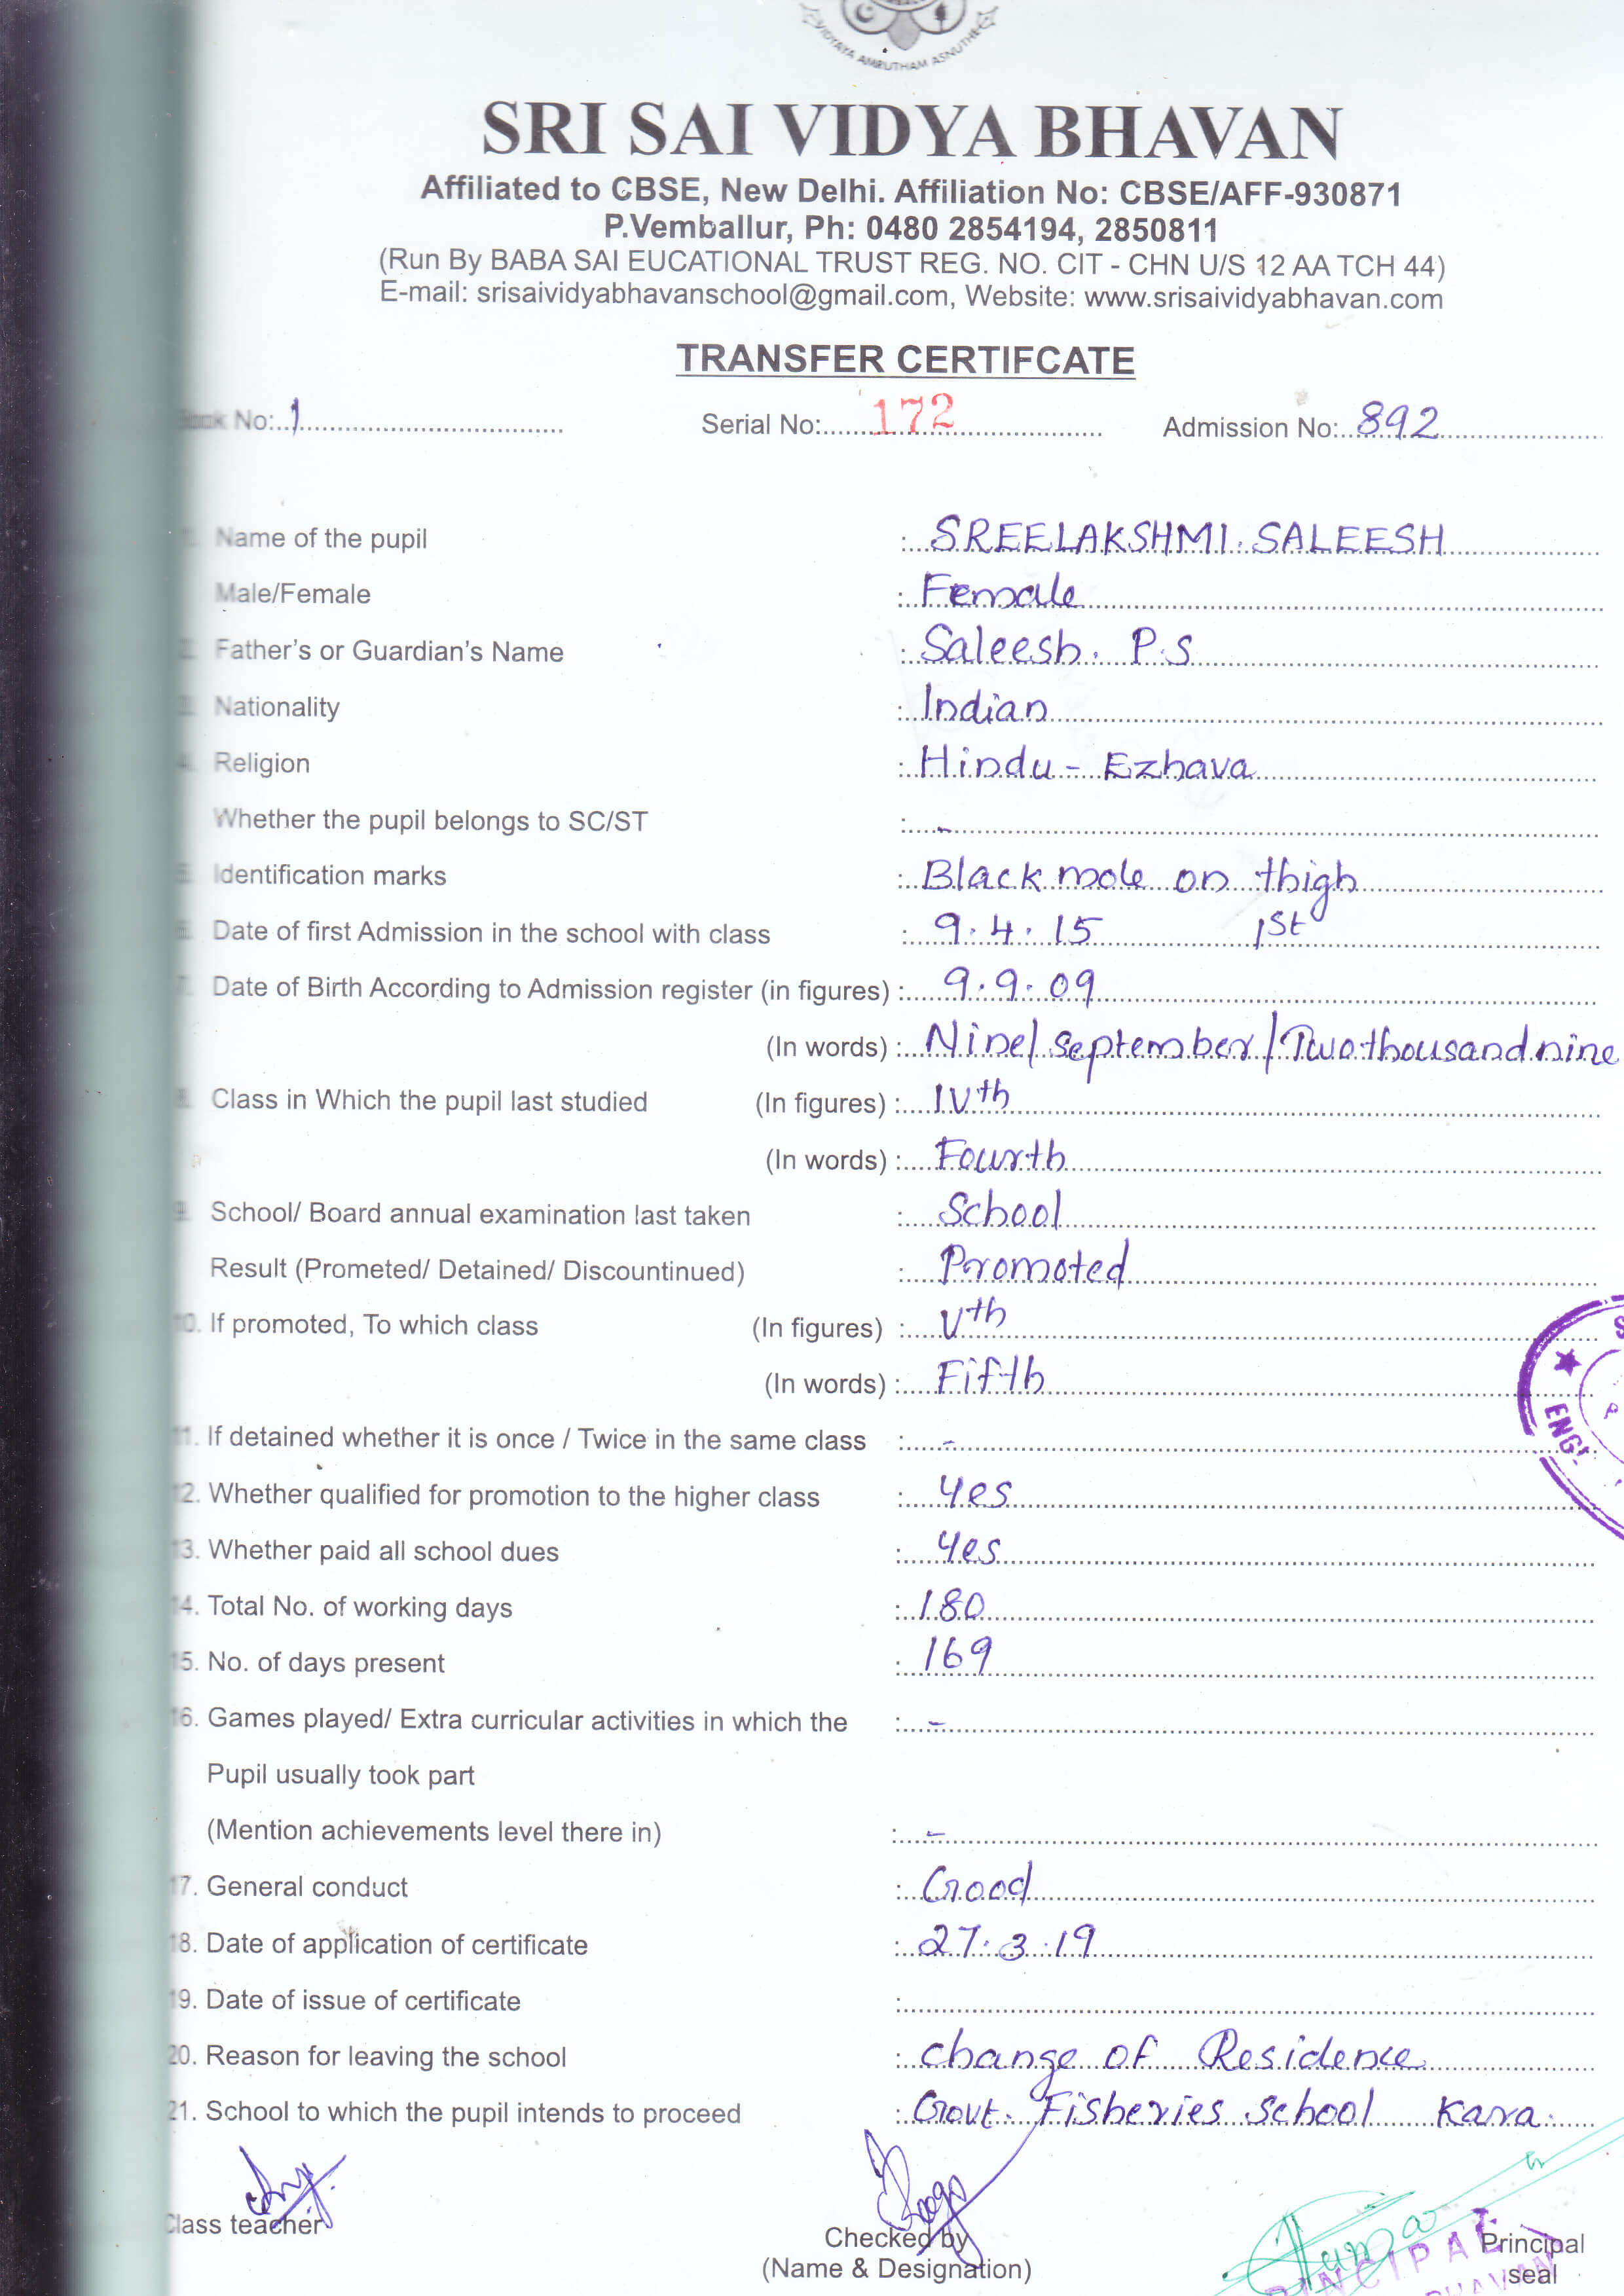 VIDYAYA AMRUTHAM ASNUTHE
SRI SAI VIDYA BHAVAN
Affiliated to CBSE, New Delhi. Affiliation No: CBSE/AFF-930871
P.Vemballur, Ph: 0480 2854194, 2850811
(Run By BABA SAI EUCATIONAL TRUST REG. NO. CIT - CHN U/S 12 AA TCH 44)
E-mail: srisaividyabhavanschool@gmail.com, Website: www.srisaividyabhavan.com
TRANSFER CERTIFCATE
Book No: 1 Serial No: 172 Admission No: 892
1. Name of the pupil : SREELAKSHMI. SALEESH
Male/Female : Female
2. Father's or Guardian's Name : Saleesh. P.S
3. Nationality : Indian
4. Religion : Hindu - Ezhava
Whether the pupil belongs to SC/ST : -
5. Identification marks : Black mole on thigh
6. Date of first Admission in the school with class : 9.4.15 1st
7. Date of Birth According to Admission register (in figures) : 9.9.09
(In words) : Nine/September/Two thousand nine
8. Class in Which the pupil last studied (In figures) : IVth
(In words) : Fourth
9. School/ Board annual examination last taken : School
Result (Prometed/ Detained/ Discountinued) : Promoted
10. If promoted, To which class (In figures) : Vth
(In words) : Fifth
11. If detained whether it is once / Twice in the same class : -
12. Whether qualified for promotion to the higher class : Yes
13. Whether paid all school dues : Yes
14. Total No. of working days : 180
15. No. of days present : 169
16. Games played/ Extra curricular activities in which the : -
Pupil usually took part
(Mention achievements level there in) : -
17. General conduct : Good
18. Date of application of certificate : 27.3.19
19. Date of issue of certificate :
20. Reason for leaving the school : Change of Residence
21. School to which the pupil intends to proceed : Govt. Fisheries School Kara.
Class teacher Checked by Principal
(Name & Designation) seal